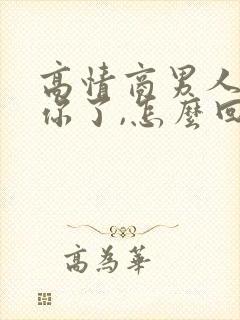 高情商男人
你了,怎麼回
高為華